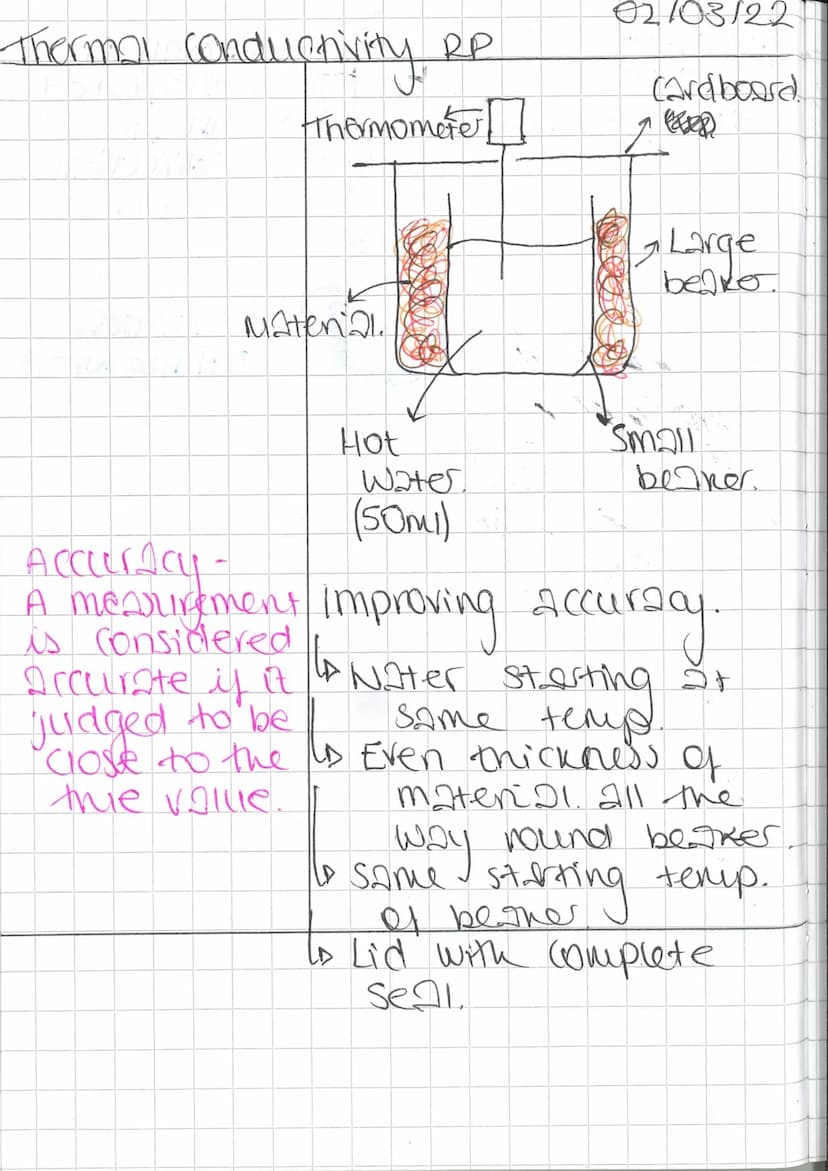 02/03/22
Thermal conductivity RP
Cardboard
Thermometer
Large
beaker.
Material.
Hot
Water.
(50ml)
Small
beaker.
Accuracy -
A measurement
is considered
accurate if it
judged to be
close to the
true value.
improving accuracy.
↳ Water starting at
same temp.
↳ Even thickness of
material. all the
way round beaker.
↳ same starting temp.
of beaker
↳ Lid with complete
seal.